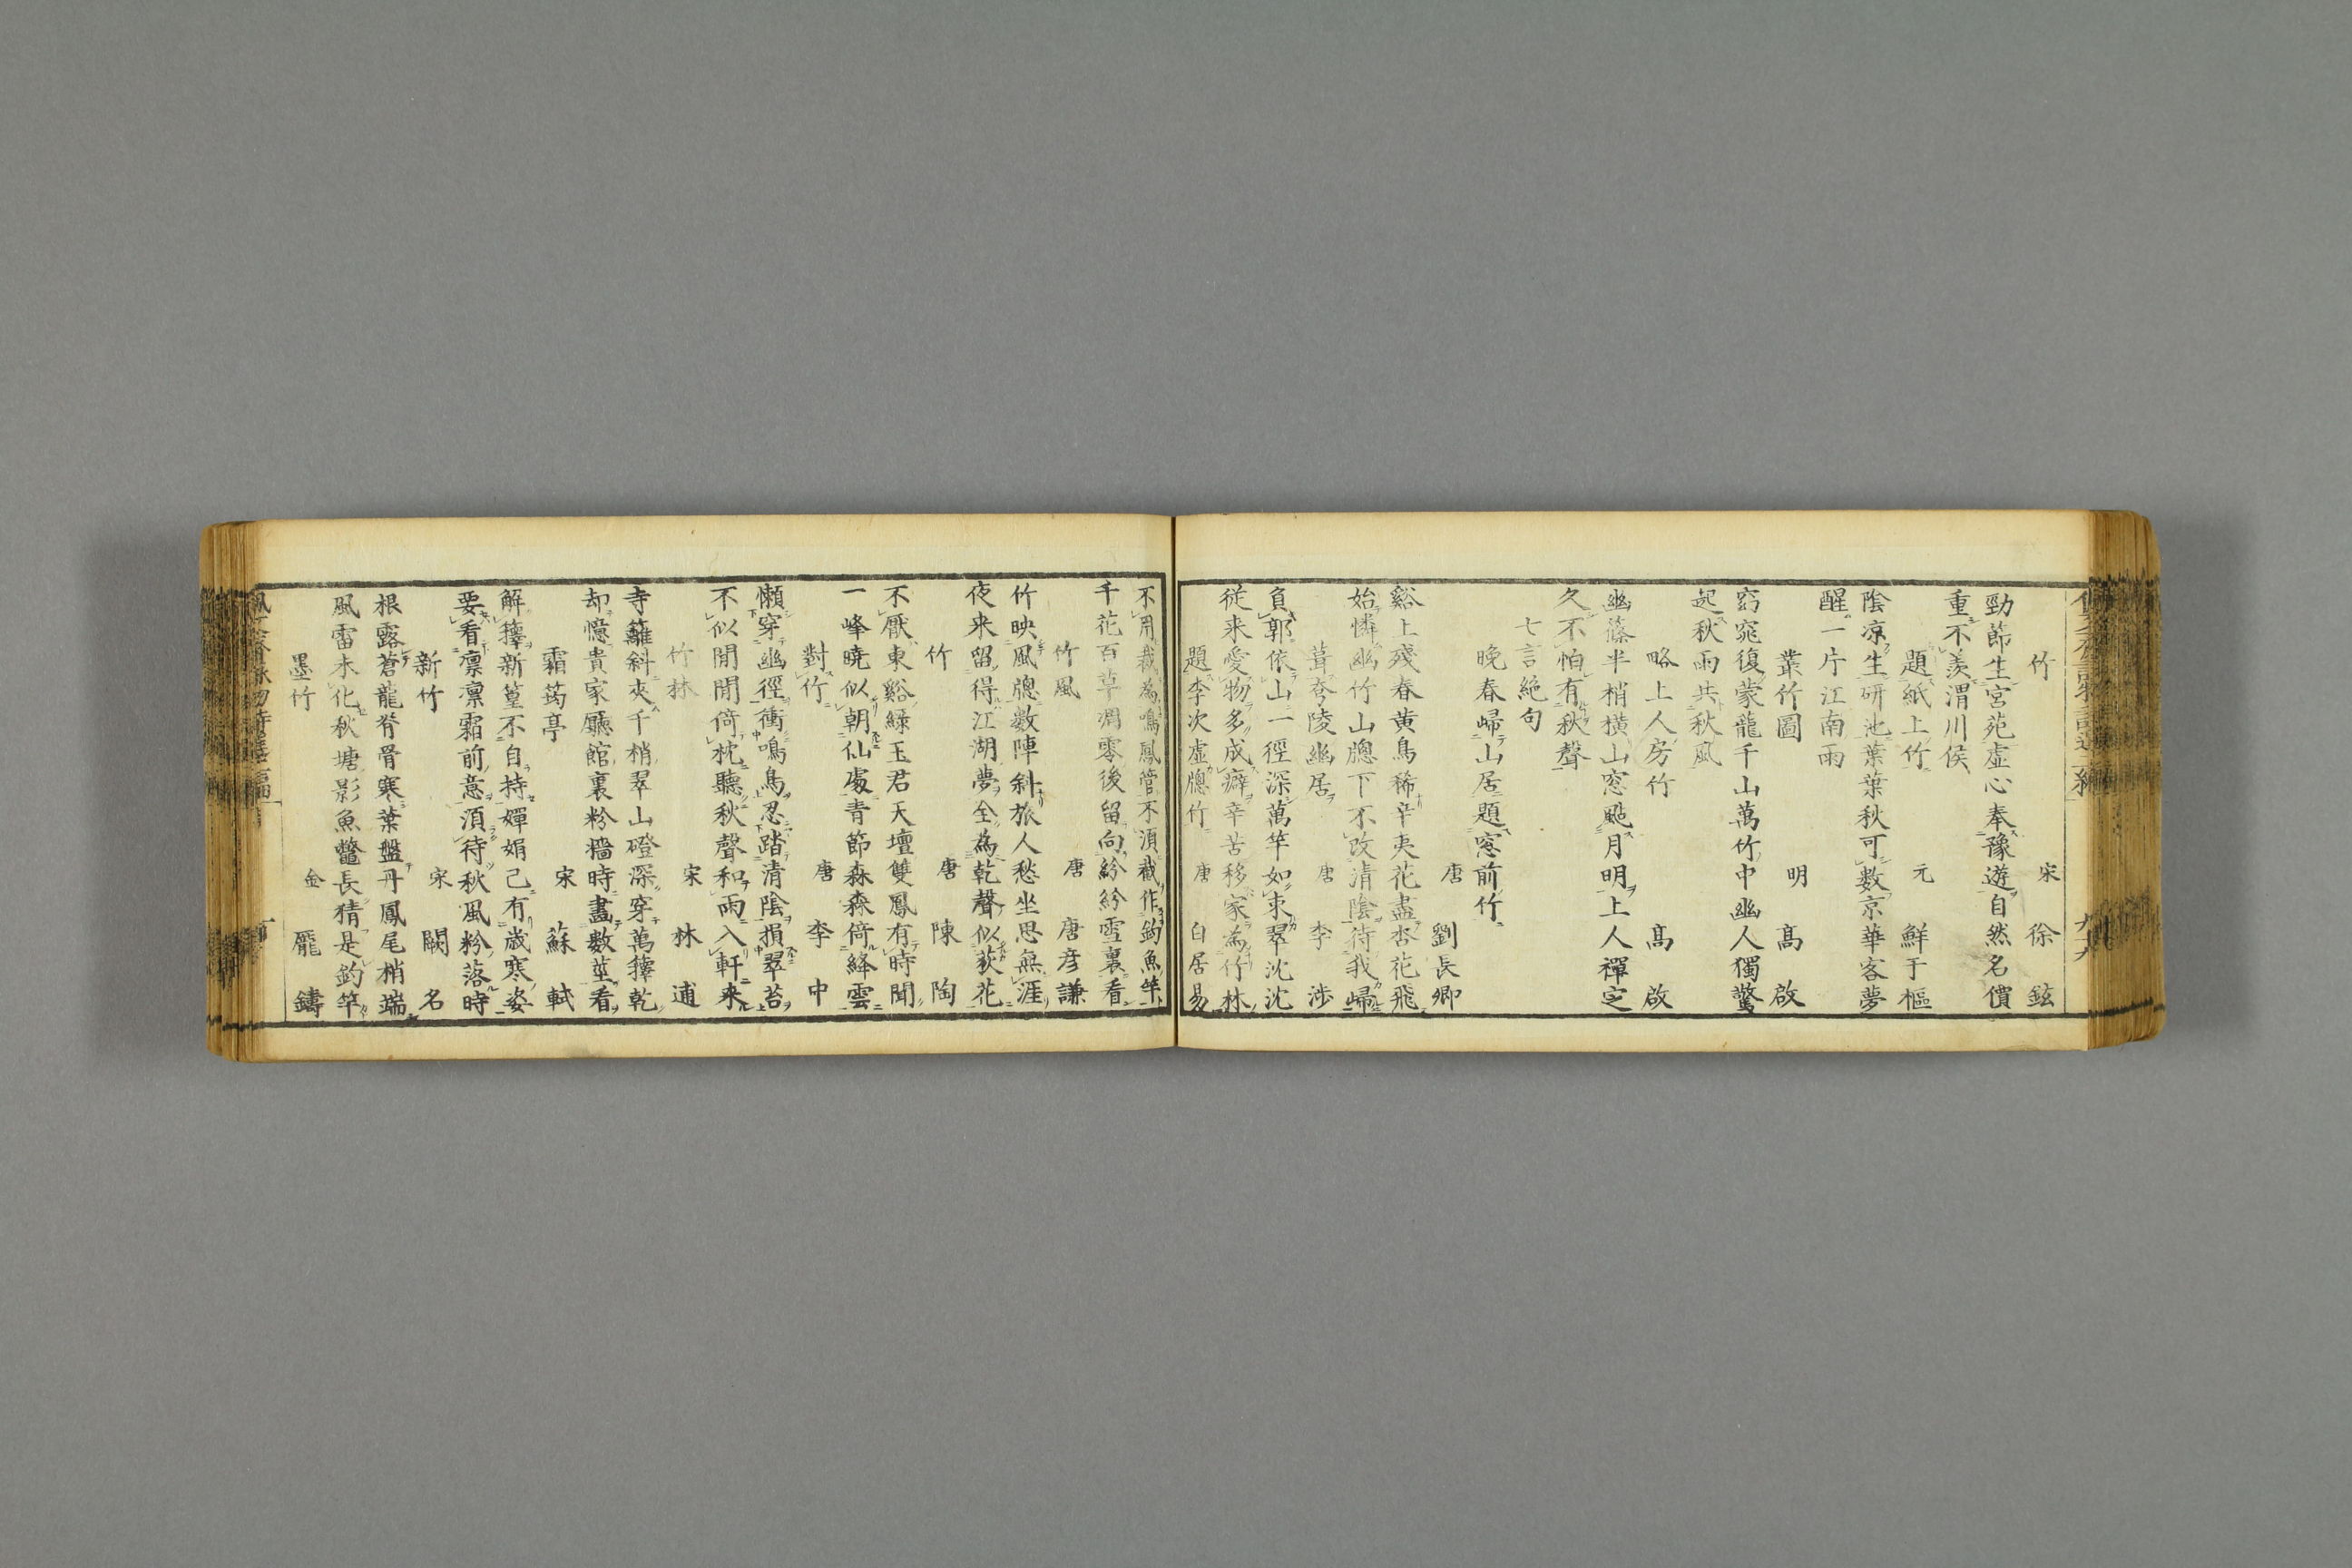 竹 宋 徐鉉
勁節生宮苑虚心奉豫遊自然名價
重不羨渭川侯
題紙上竹 元 鮮于樞
陰凉生研池葉葉秋可數京華客夢
醒一片江南雨
叢竹圖 明 髙啟
窈窕復蒙龍千山萬竹中幽人獨驚
起秋雨共秋風
略上人房竹 髙啟
幽篠半梢横山窓颭月明上人禪定
久不怕有秋聲
七言絶句
晚春歸山居題窓前竹
唐 劉長卿
谿上殘春黄鳥稀辛夷花盡杏花飛
始憐幽竹山牕下不改清陰待我歸
葺夸陵幽居 唐 李渉
負郭依山一徑深萬竿如束翠沈沈
從来愛物多成癖辛苦移家為竹林
題李次虚牕竹 唐 白居易
不用裁為鳴鳳管不須截作釣魚竿
千花百草凋零後留向紛紛雪裏看
竹風 唐 唐彦謙
竹映風牕數陣斜旅人愁坐思無涯
夜来留得江湖夢全為乾聲似荻花
竹 唐 陳陶
不厭東谿緑玉君天壇雙鳳有時聞
一峰曉似朝仙處青節森森倚絳雲
對竹 唐 李中
懶穿幽徑衝鳴鳥忍踏清陰損翠苔
不似閒閒倚枕聽秋聲和雨入軒来
竹林 宋 林逋
寺籬斜夾千梢翠山磴深穿萬籜乾
却憶貴家廳館裏粉牆時畫數莖看
霜筠亭 宋 蘇軾
解籜新篁不自持嬋娟已有歳寒姿
要看凛凛霜前意須待秋風粉落時
新竹 宋 闕名
根露蒼龍脊骨寒葉盤丹鳳尾梢端
風雷未化秋塘影魚鼈長猜是釣竿
墨竹 金 龎鑄